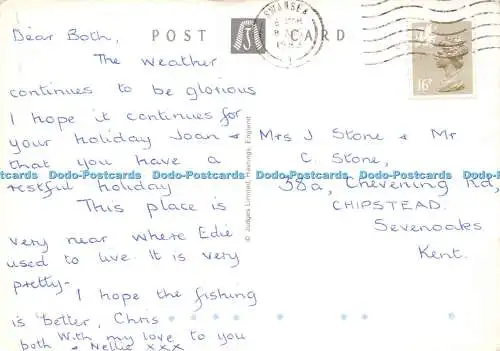 POST CARD
SWANSEA
16P
Dear Both,
The weather
continues to be glorious
I hope it continues for
your holiday Joan &
that you have a
restful holiday
This place is
very near where Edie
used to live. It is very
pretty-
I hope the fishing
is better, Chris
With my love to you
both & Nellie xxx
© Judges Limited, Hastings, England
Mrs J Stone & Mr
C. Stone,
38a, Chevening Rd,
CHIPSTEAD.
Sevenoaks
Kent.
Dodo-Postcards Dodo-Postcards Dodo-Postcards Dodo-Postcards Dodo-Postcards